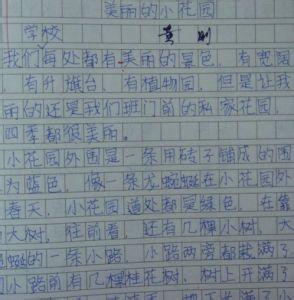 美丽的小花园
学校 黄刚
我们每处都有美丽的景色。有宽阔
，有升旗台，有植物园，但是让我
丽的还是我们班门前的私家花园
四季都很美丽。
小花园外围是一条用砖子铺成的围
为蓝色，像一条龙蜿蜒在小花园外
春天，小花园道处都是绿色，在靠
大树。往前看，还有几棵小树。大
蜒的一条小路，小路两旁都栽满了
小路前有几棵桂花树，树上开满了